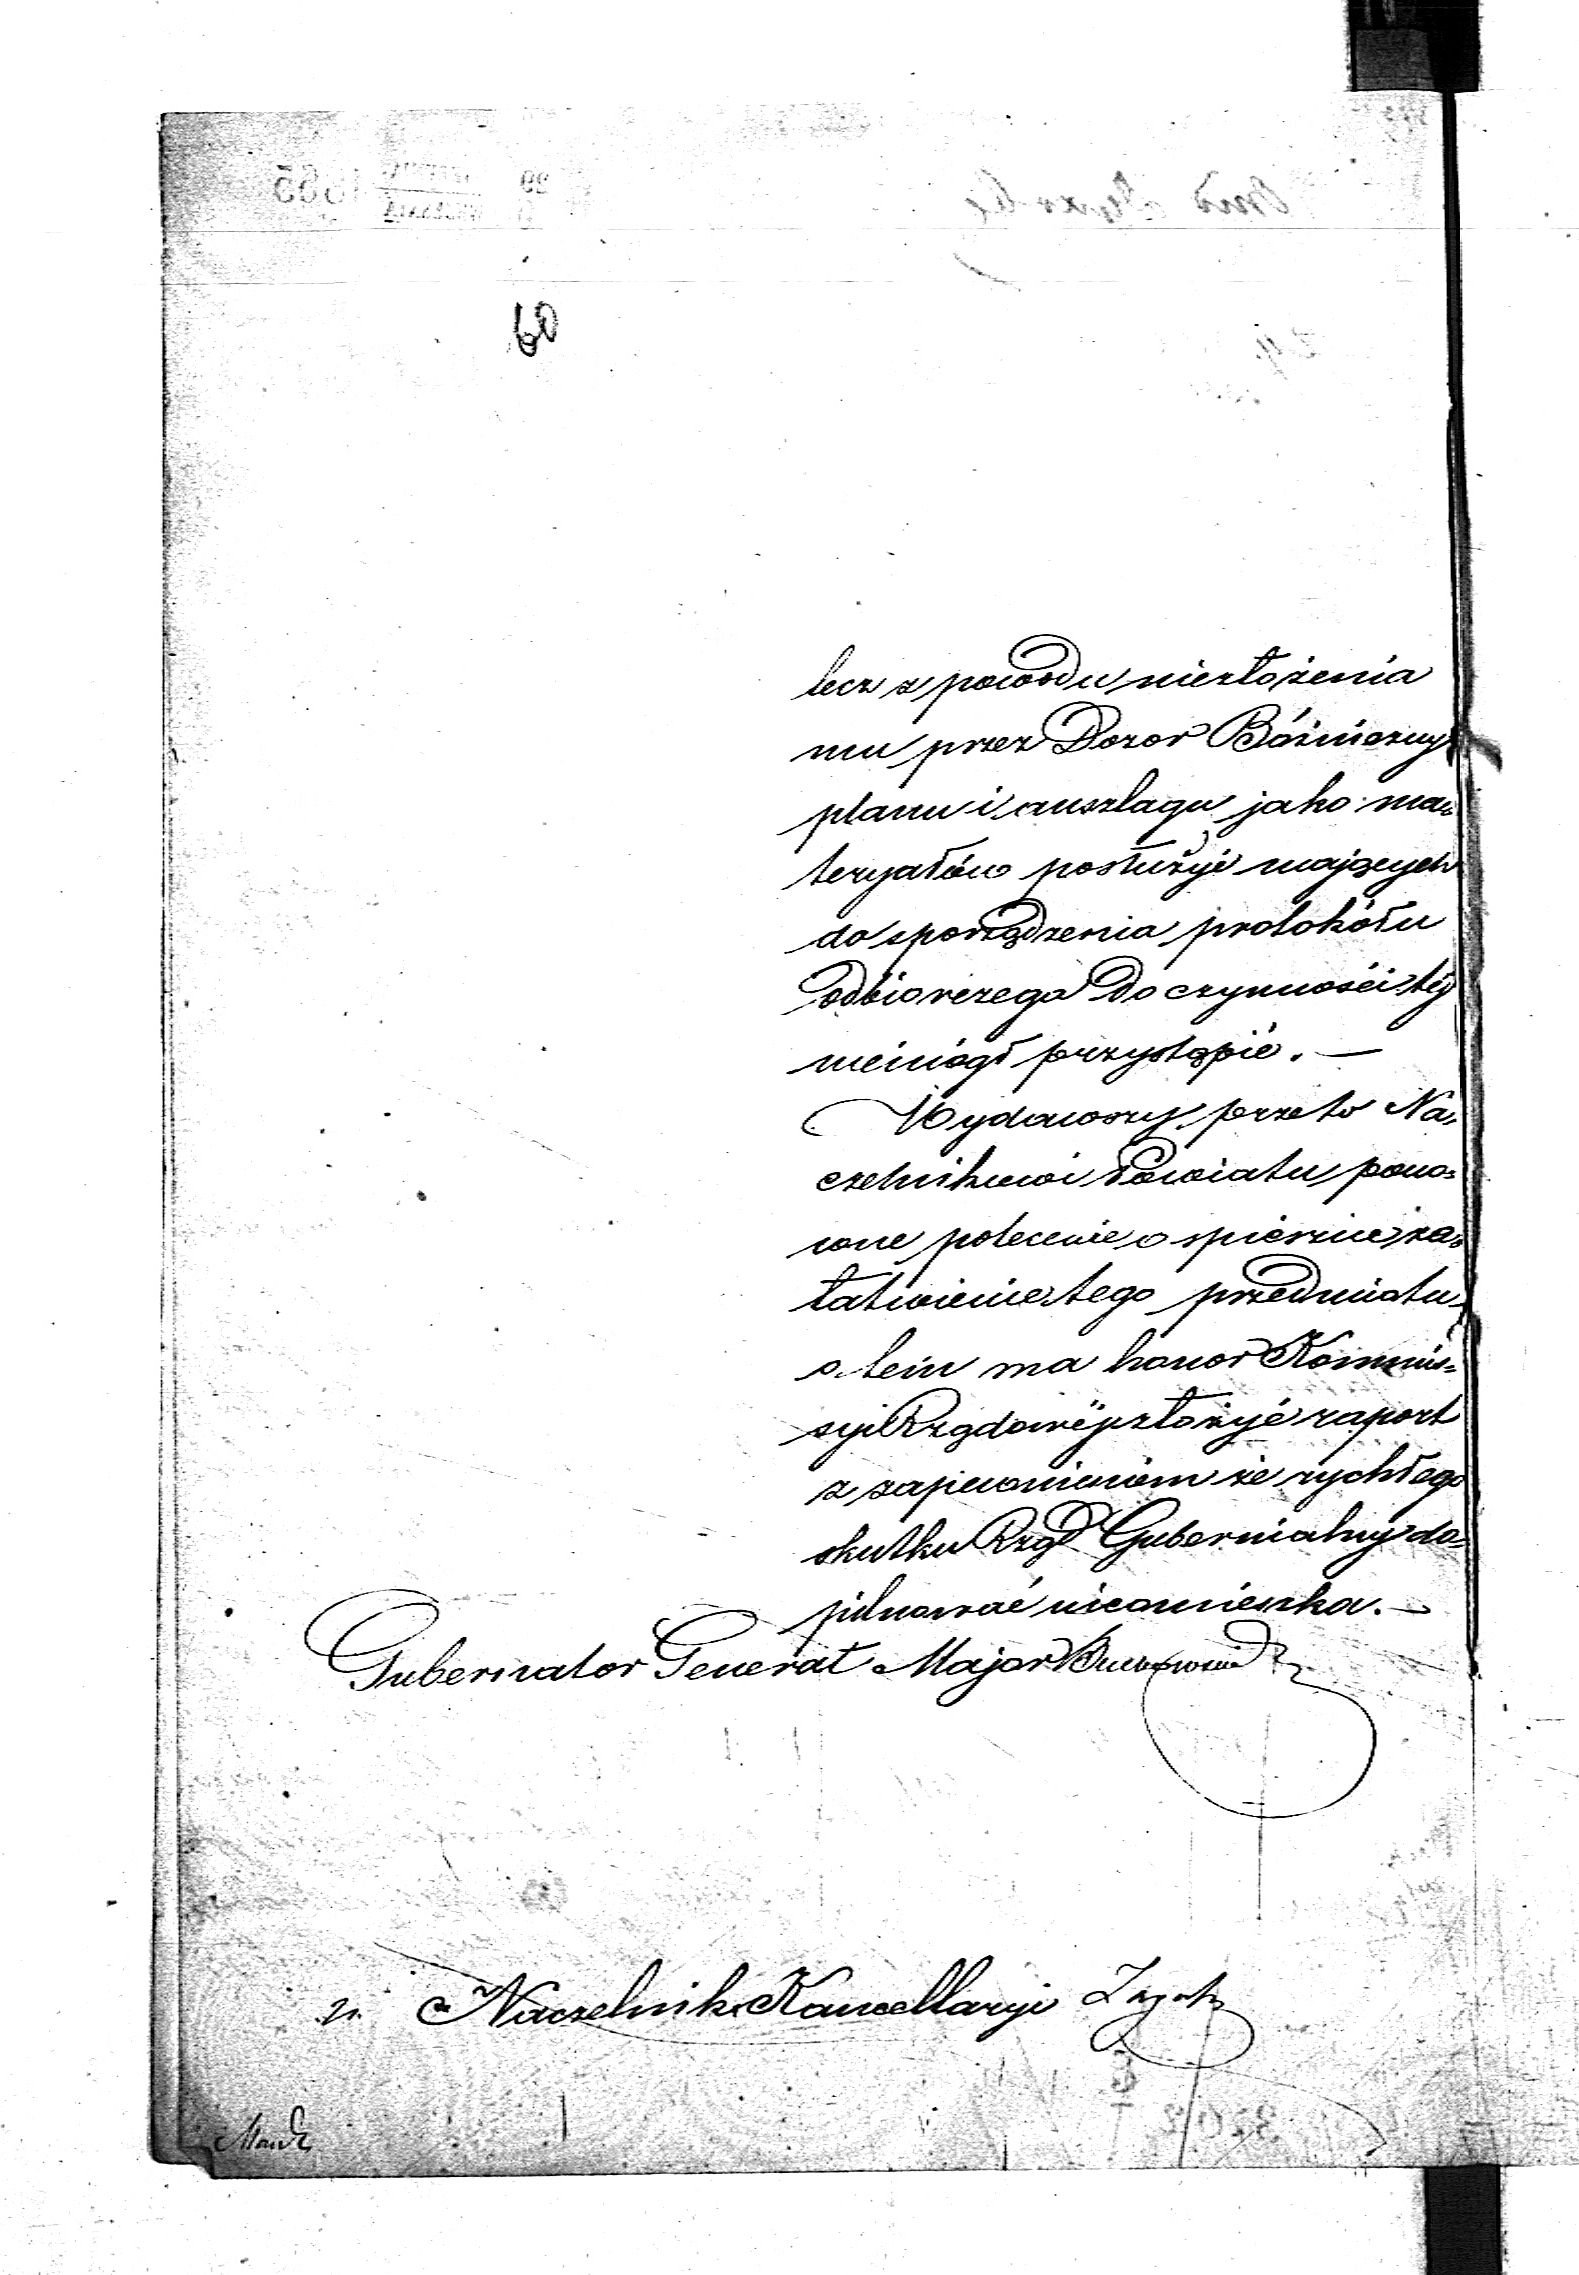 60
lecz z powodu niezłożenia
mu przez Dozor Bóżniczny
planu i anszlagu jako ma=
teryałów posłużyć mających
do sporządzenia protokółu
odbiorczego do czynności téj
niemógł przystąpić. —
Wydawszy przeto Na=
czelnikowi Powiatu pono=
wne polecenie o spieszne za=
łatwienie tego przedmiotu
o tem ma honor Kommis=
syi Rządowéj złożyć raport
z zapewnieniem że rychłego
skutku Rząd Gubernialny do=
pilnować nieomieszka. —
Gubernator Generał Major
Naczelnik Kancellaryi